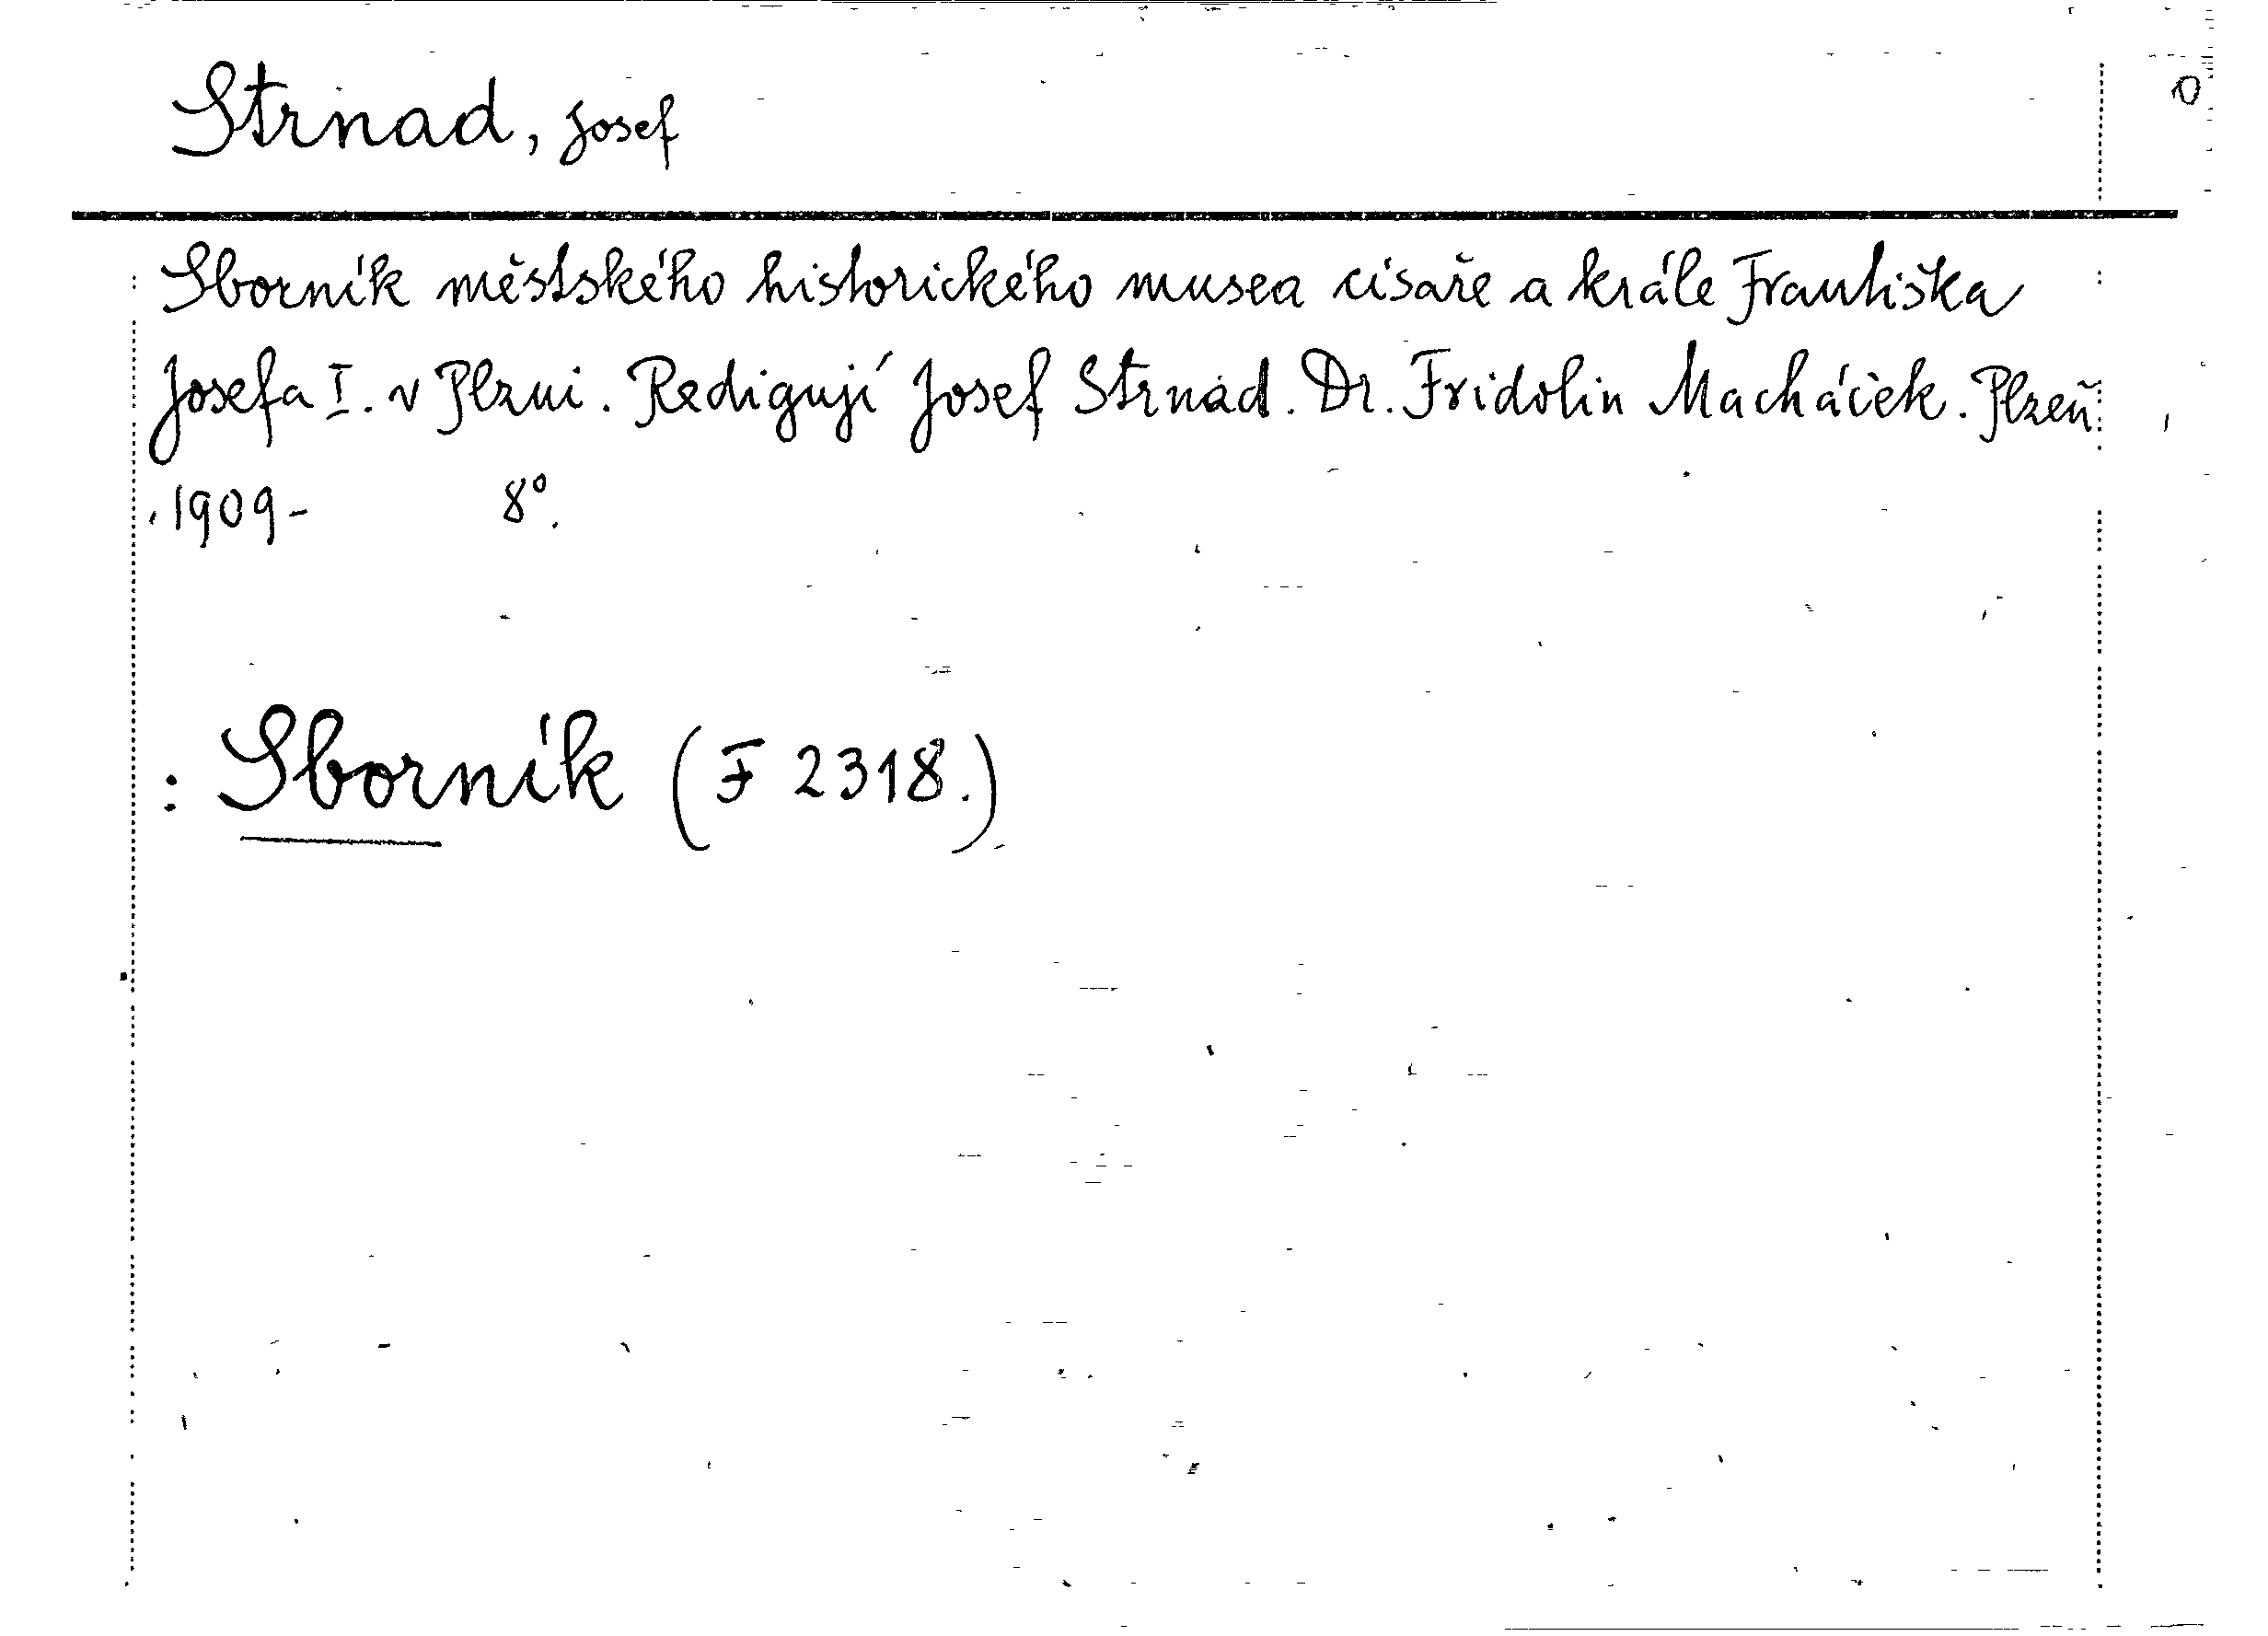 Strnad, Josef
Sborník městského historického musea císaře a krále Františka
Josefa I. v Plzni. Redigují Josef Strnad. Dr. Fridolin Macháček. Plzeň
1909- 8°.
: Sborník (F 2318.)